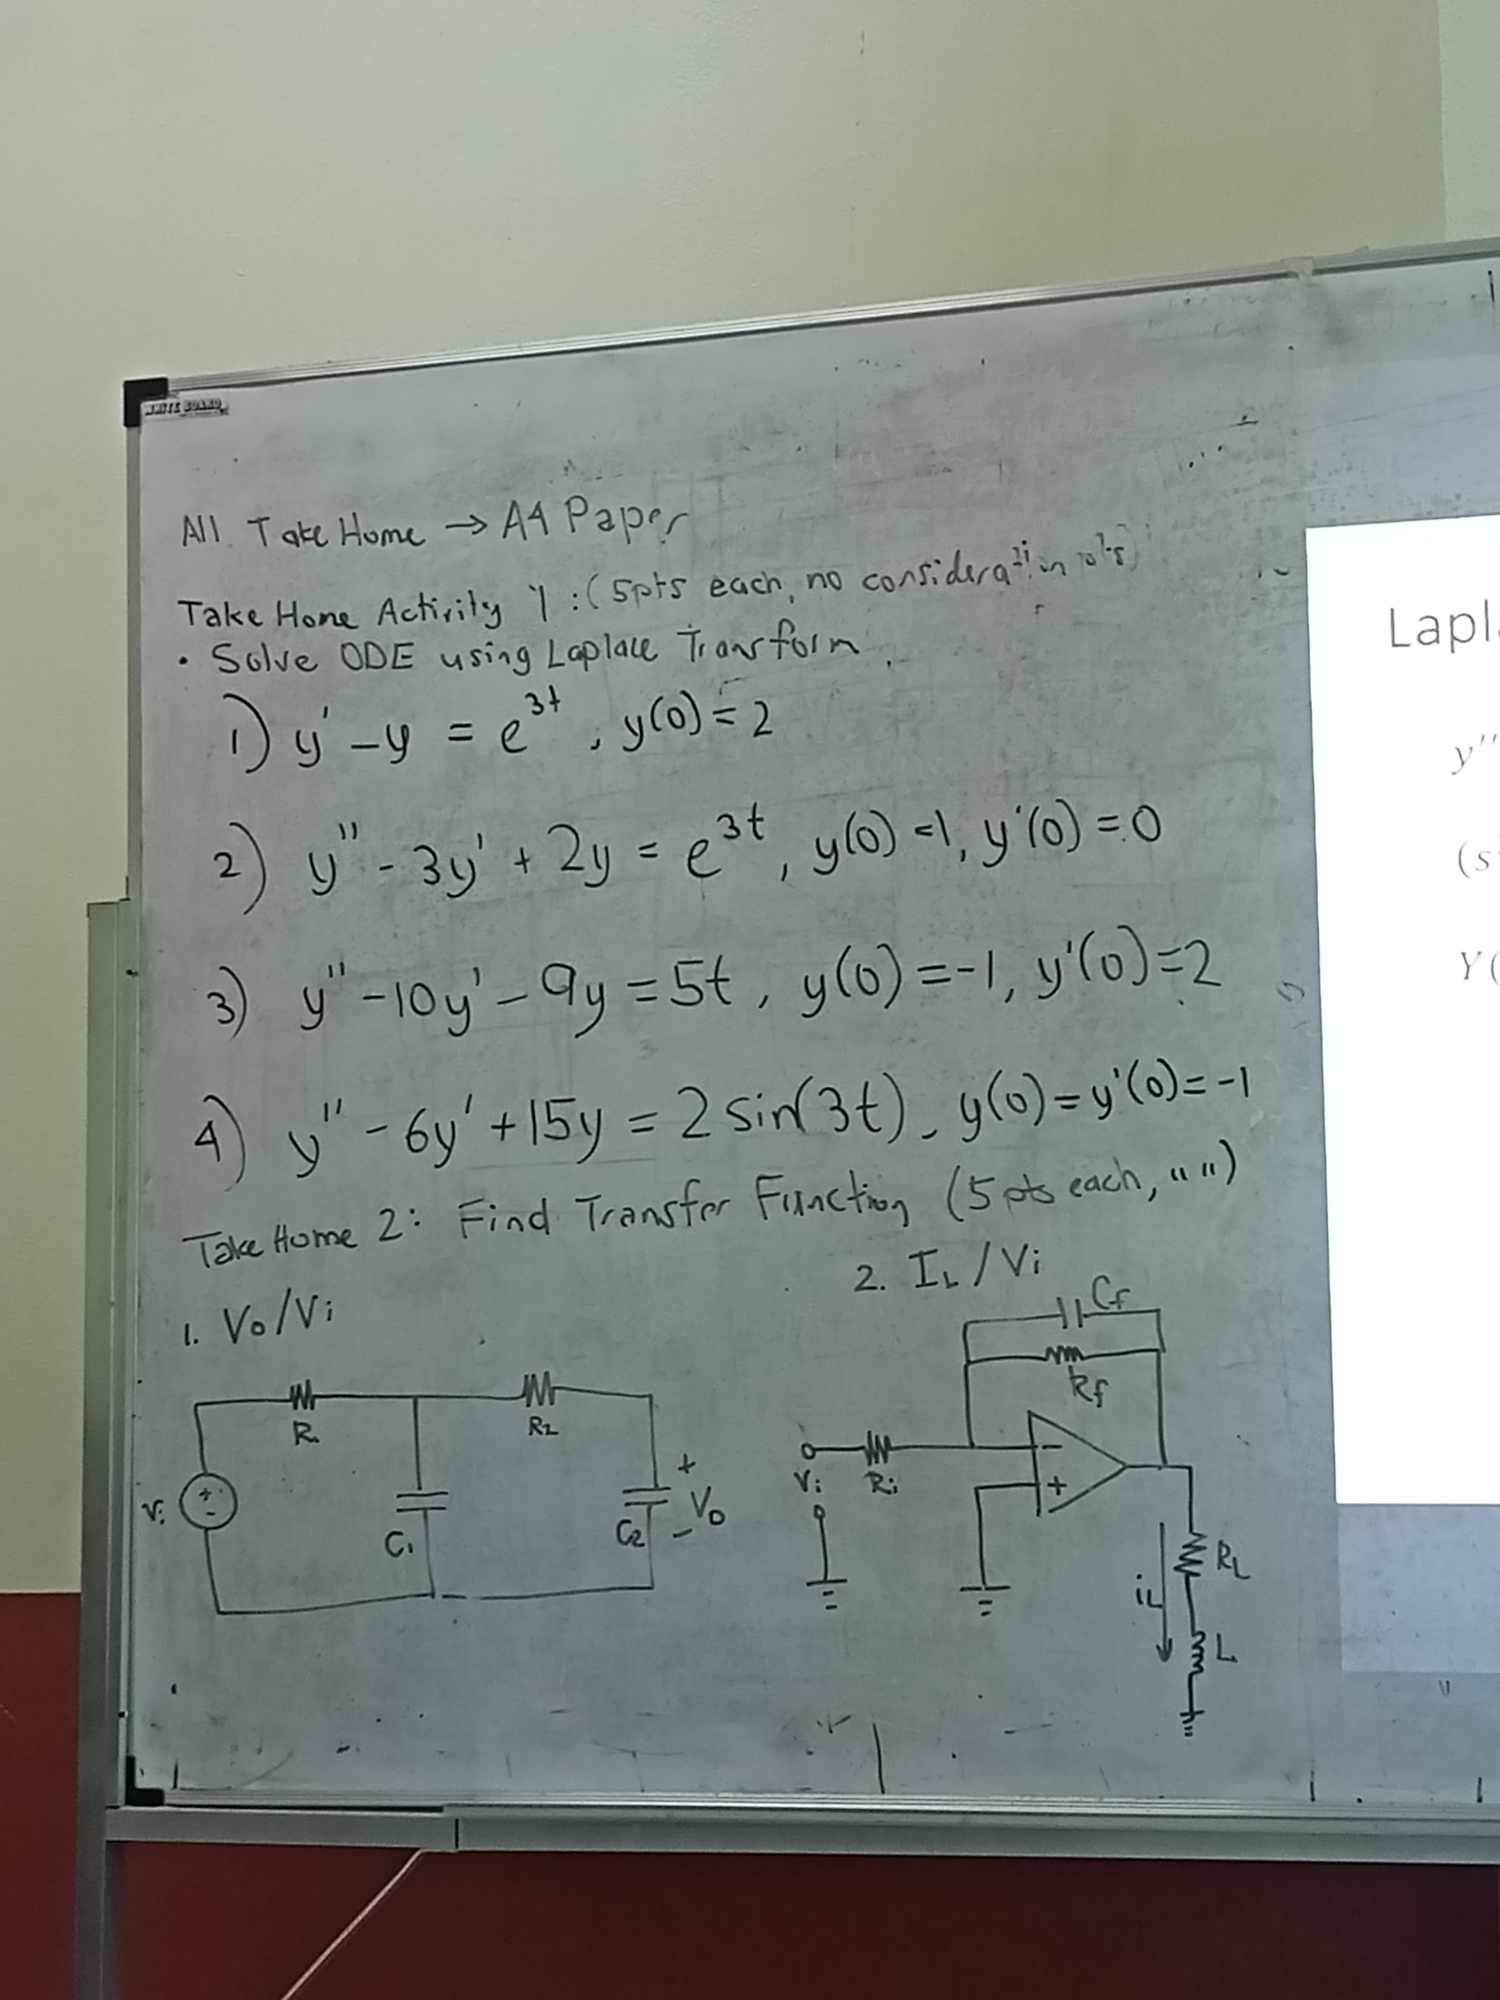 WHITE BOARD
All Take Home → A4 Paper
Take Home Activity 1: (5pts each, no consideration
• Solve ODE using Laplace Transform.
1) y' - y = e^3t, y(0) = 2
2) y'' - 3y' + 2y = e^3t, y(0) = 1, y'(0) = 0
3) y'' - 10y' - 9y = 5t, y(0) = -1, y'(0) = 2
4) y'' - 6y' + 15y = 2 sin(3t), y(0) = y'(0) = -1
Take Home 2: Find Transfer Function (5 pts each, " ")
1. Vo/Vi
R1
R2
Vi
+
-
C1
C2
+
Vo
-
2. IL/Vi
Cf
Rf
Vi
Ri
-
+
RL
iL
L
Lapl
y''
(s
Y(